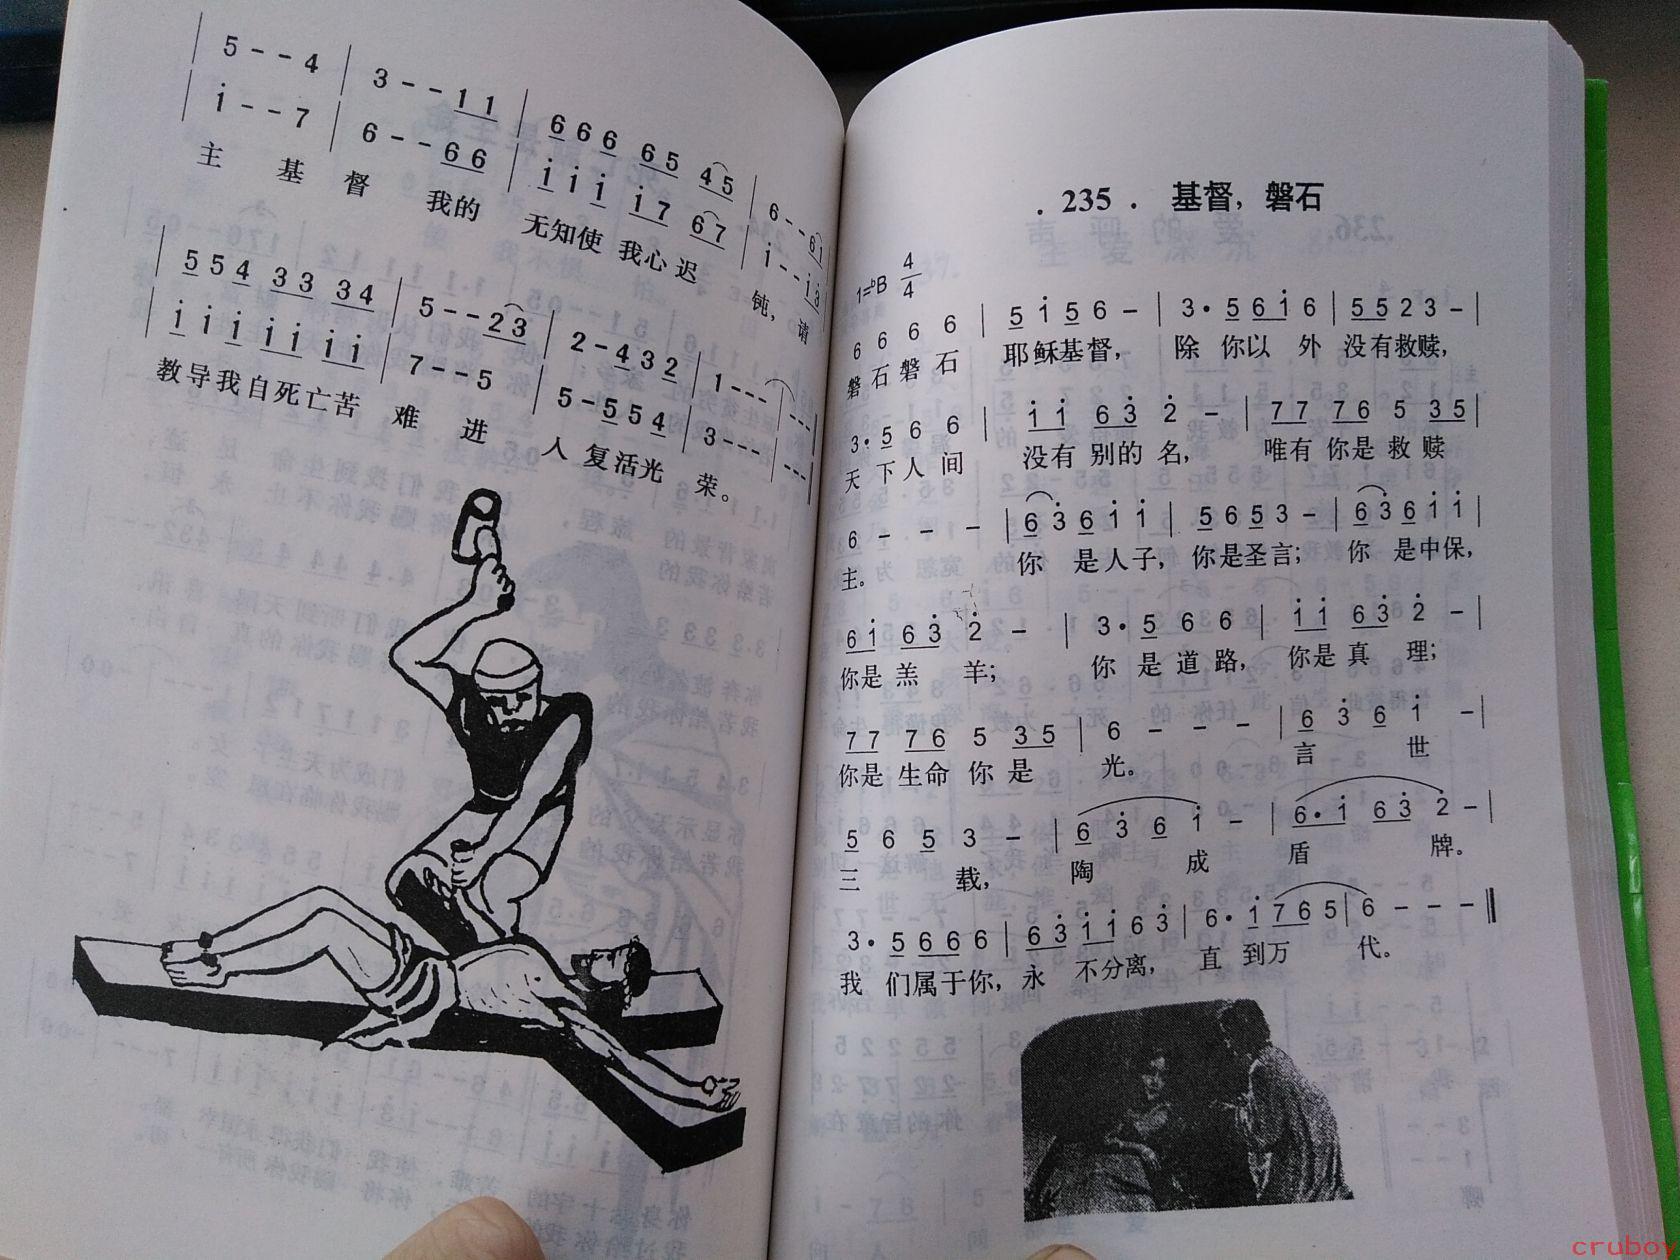 5 - - 4 | 3 - - 1 1 | 6 6 6 6 5 4 5 | 6 - - 6 1
i - - 7 | 6 - - 6 6 | i i i i 7 6 7 | i - - i 3
主 基 督 我的 无知使 我心 迟 钝，请
5 5 4 3 3 3 4 | 5 - - 2 3 | 2 - 4 3 2 | 1 - - -
i i i i i i i | 7 - - 5 | 5 - 5 5 4 | 3 - - -
教导我自死亡苦 难 进 人 复活光 荣。
. 235 . 基督，磐石
1=ᵇB 4/4
6 6 6 6 | 5 i 5 6 - | 3· 5 6 i 6 | 5 5 2 3 - |
磐石磐石 耶稣基督， 除 你以 外 没有救赎，
3· 5 6 6 | i i 6 3 2 - | 7 7 7 6 5 3 5 |
天下人间 没有 别的 名， 唯有 你是 救 赎
6 - - - | 6 3 6 i i | 5 6 5 3 - | 6 3 6 i i |
主。 你 是人子，你是圣言； 你 是中保，
6 i 6 3 2 - | 3· 5 6 6 | i i 6 3 2 - |
你是 羔 羊； 你 是 道 路， 你是 真 理；
7 7 7 6 5 3 5 | 6 - - - | 6 3 6 i - |
你是 生命 你 是 光。 言 世
5 6 5 3 - | 6 3 6 i - | 6· i 6 3 2 - |
三 载， 陶 成 盾 牌。
3· 5 6 6 6 | 6 3 i i 6 3 | 6· i 7 6 5 | 6 - - - ‖
我 们属于你，永 不分离， 直 到万 代。
cruboy